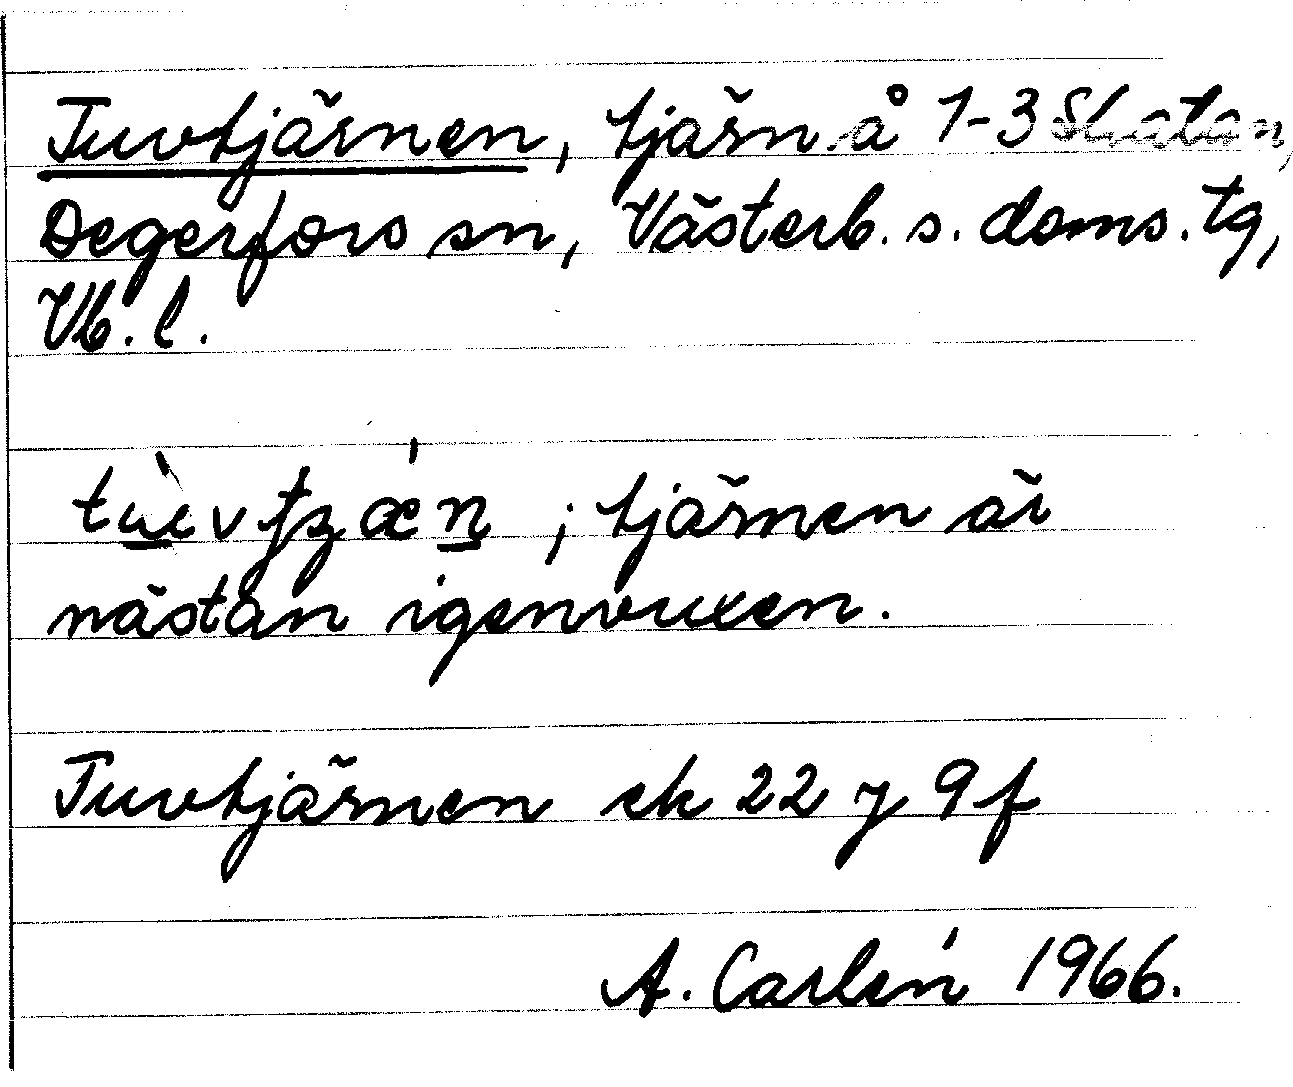 Tuvtjärnen, tjärn å 1-3 Skatan,
Degerfors sn, Västerb. s. doms. tg,
Vb. l.
; tjärnen är
nästan igenvuxen.
Tuvtjärnen ek 22 y 9 f
A. Carlén 1966.